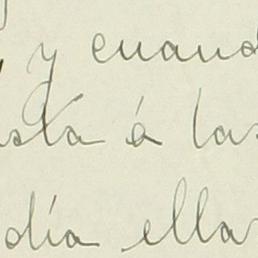 y cuand
sta á las
día ella